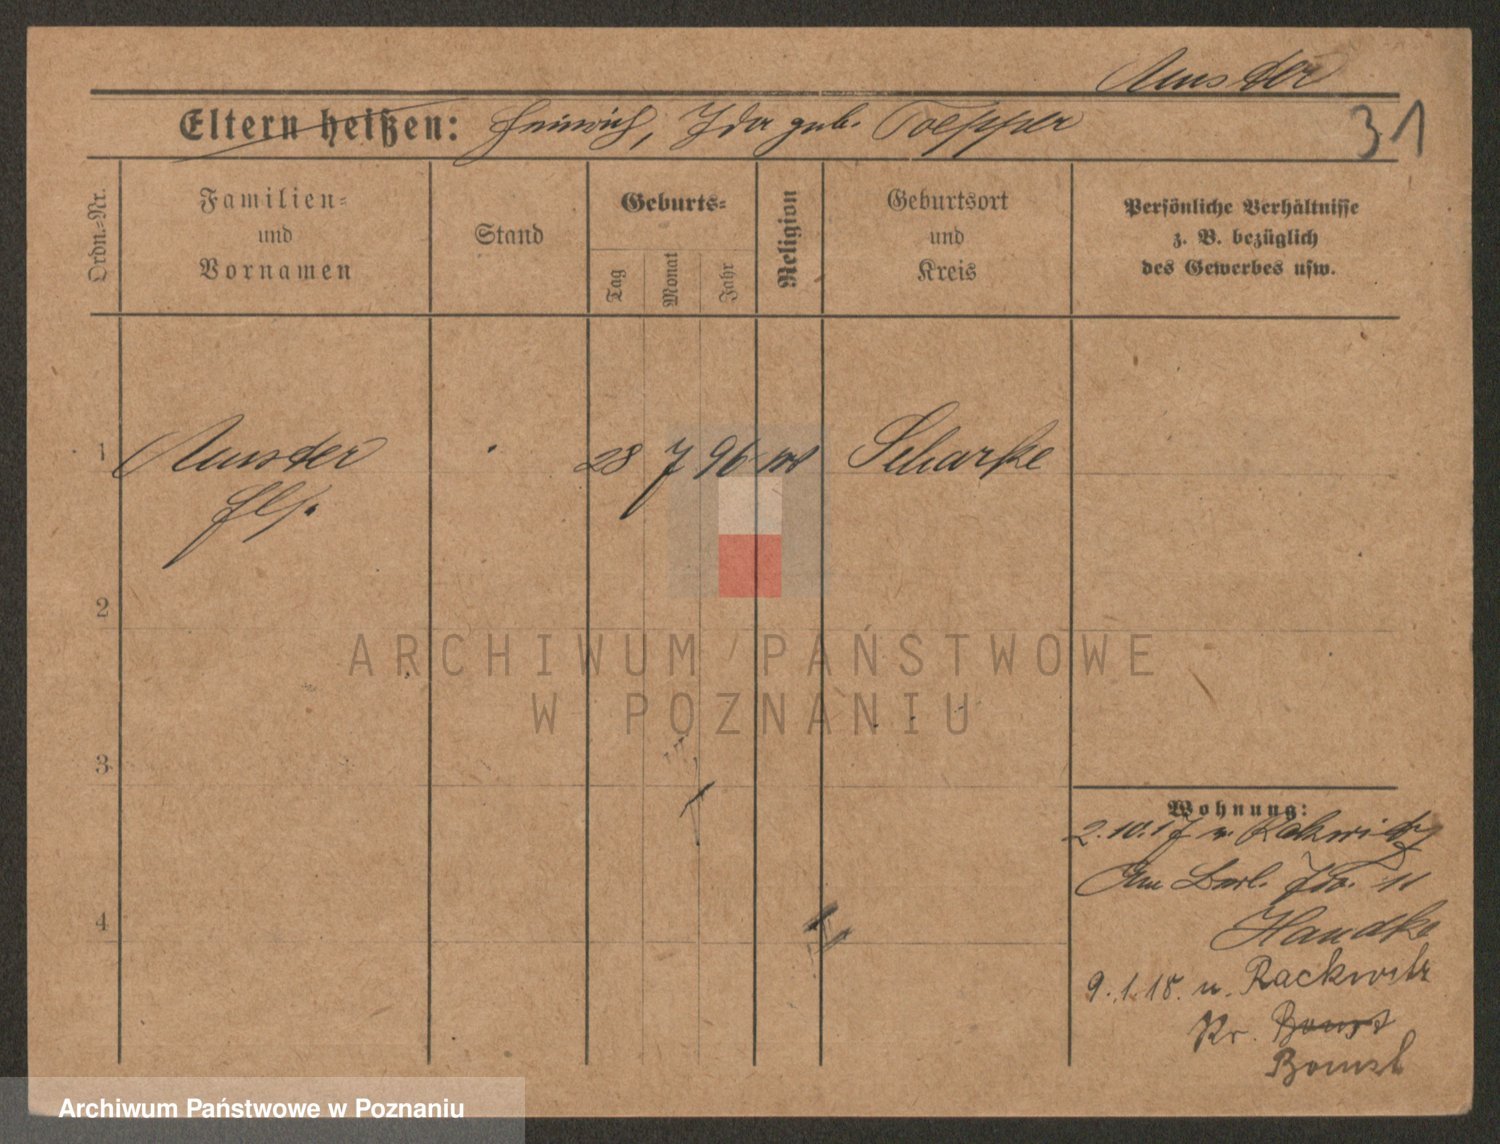 Amster
Eltern heißen: Heinrich, Ida geb. Toepper
31
Ordn.-Nr.
Familien-
und
Vornamen
Stand
Geburts-
Tag
Monat
Jahr
Religion
Geburtsort
und
Kreis
Persönliche Verhältnisse
z. B. bezüglich
des Gewerbes usw.
1
Amster
28 7 96
Scharke
2
ARCHIWUM PAŃSTWOWE
W POZNANIU
3
Wohnung:
2.10.17 n. Rakwitz
Am Berl. 11
Handke
4
9.1.18. n. Rackwitz
Kr. Bomst
Bomst
Archiwum Państwowe w Poznaniu